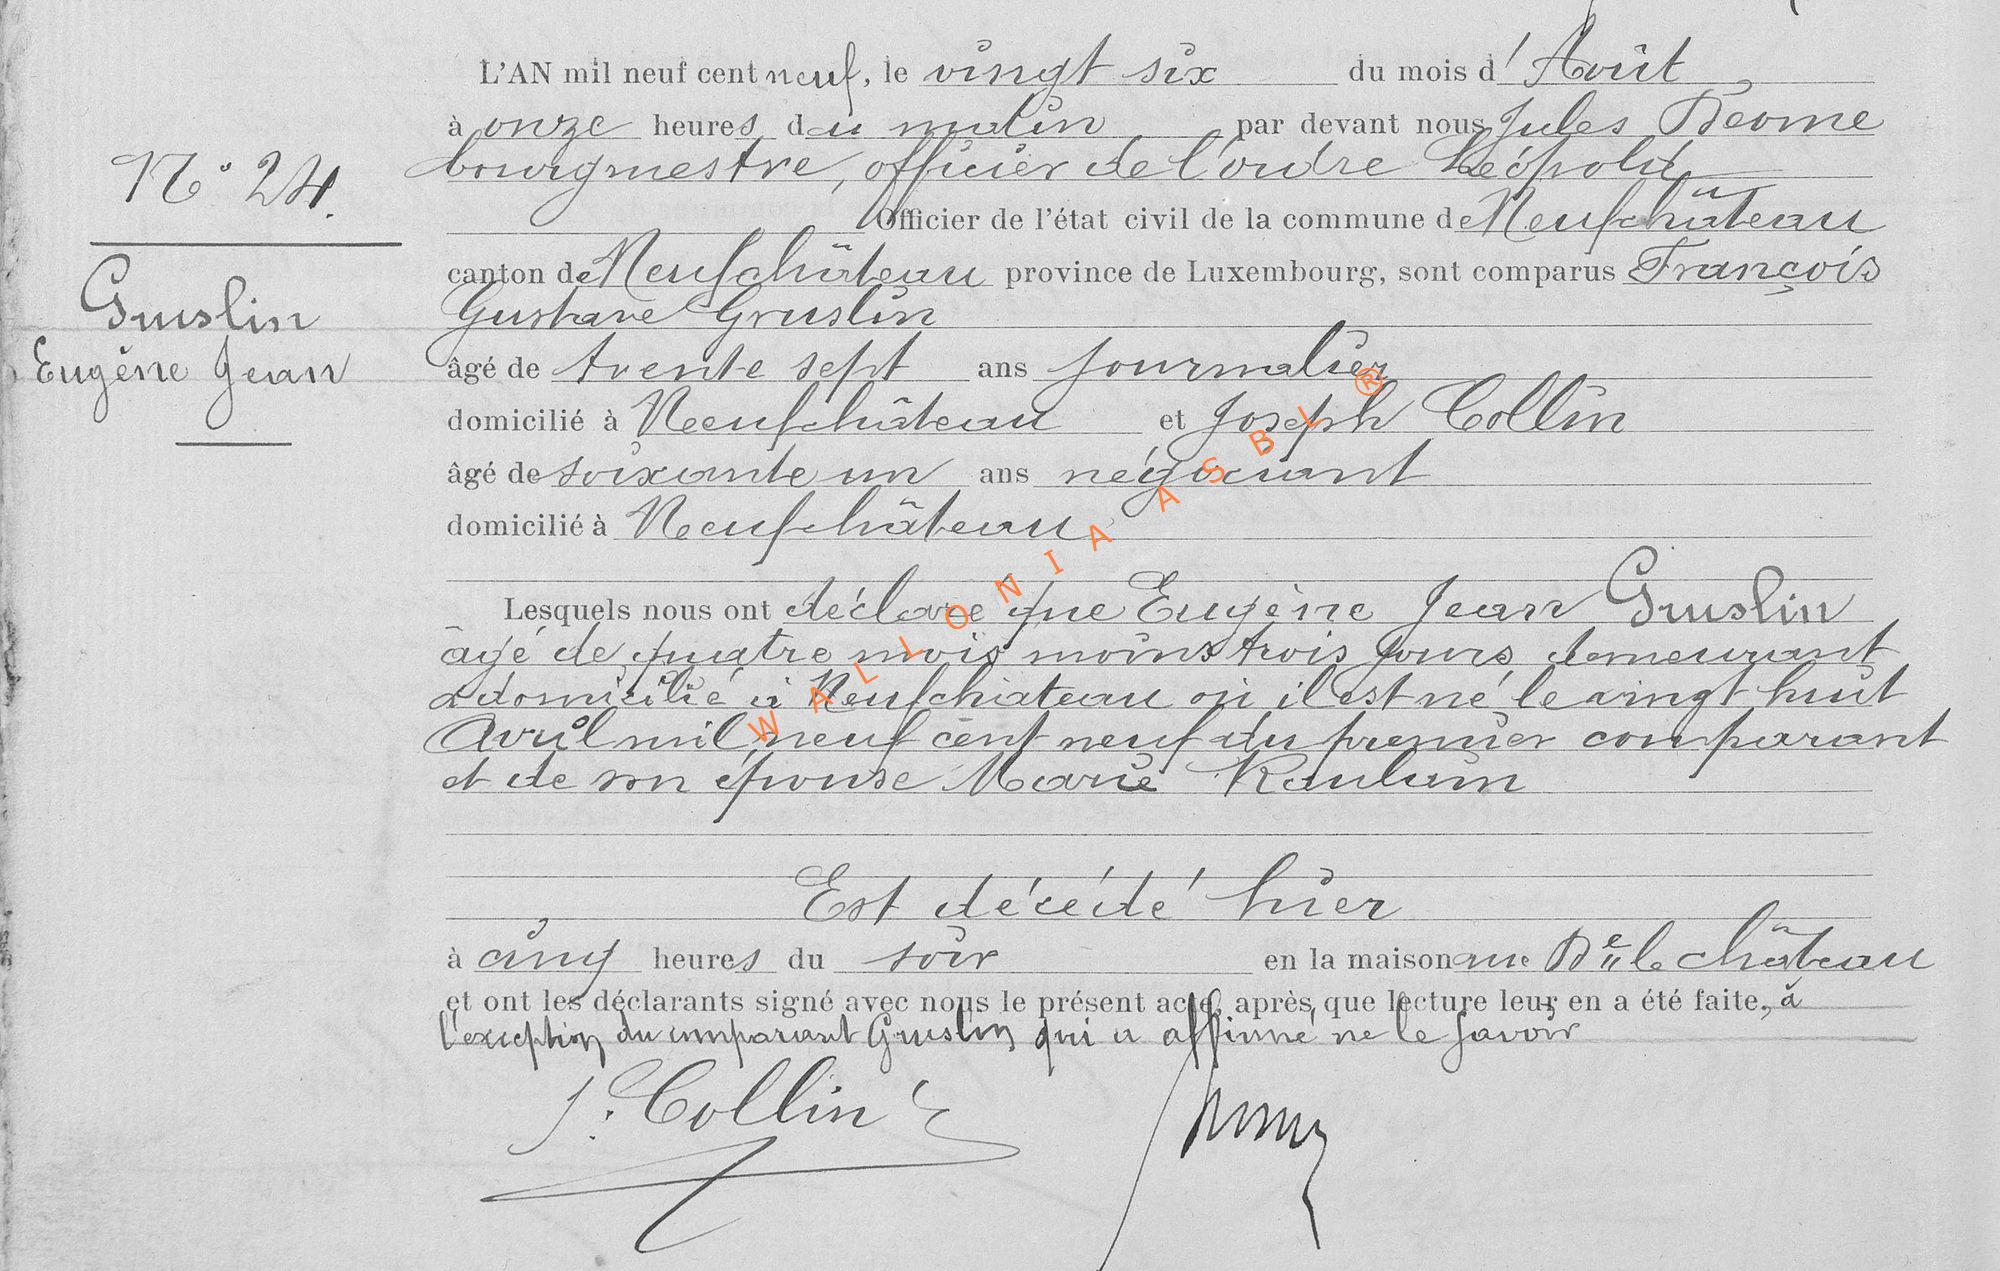 L'AN mil neuf cent neuf, le vingt six du mois d'Août
à onze heures du matin par devant nous Jules Deome
bourgmestre, officier de l'ordre Léopold
Officier de l'état civil de la commune de Neufchâteau
canton de Neufchâteau province de Luxembourg, sont comparus François
Gustave Gruslin
N° 24.
Gruslin
Eugène Jean
âgé de trente sept ans journalier
domicilié à Neufchâteau et Joseph Collin
âgé de soixante un ans négociant
domicilié à Neufchâteau
Lesquels nous ont déclaré que Eugène Jean Gruslin
âgé de quatre mois moins trois jours demeurant
& domicilié à Neufchateau où il est né le vingt huit
Avril mil neuf cent neuf du premier comparant
et de son épouse Marie Raulain
Est décédé hier
à cinq heures du soir en la maison rue le château
et ont les déclarants signé avec nous le présent acte, après que lecture leur en a été faite, à
l'exception du comparant Gruslin qui a affirmé ne le savoir
J. Collin
WALLONIA ASBL ®